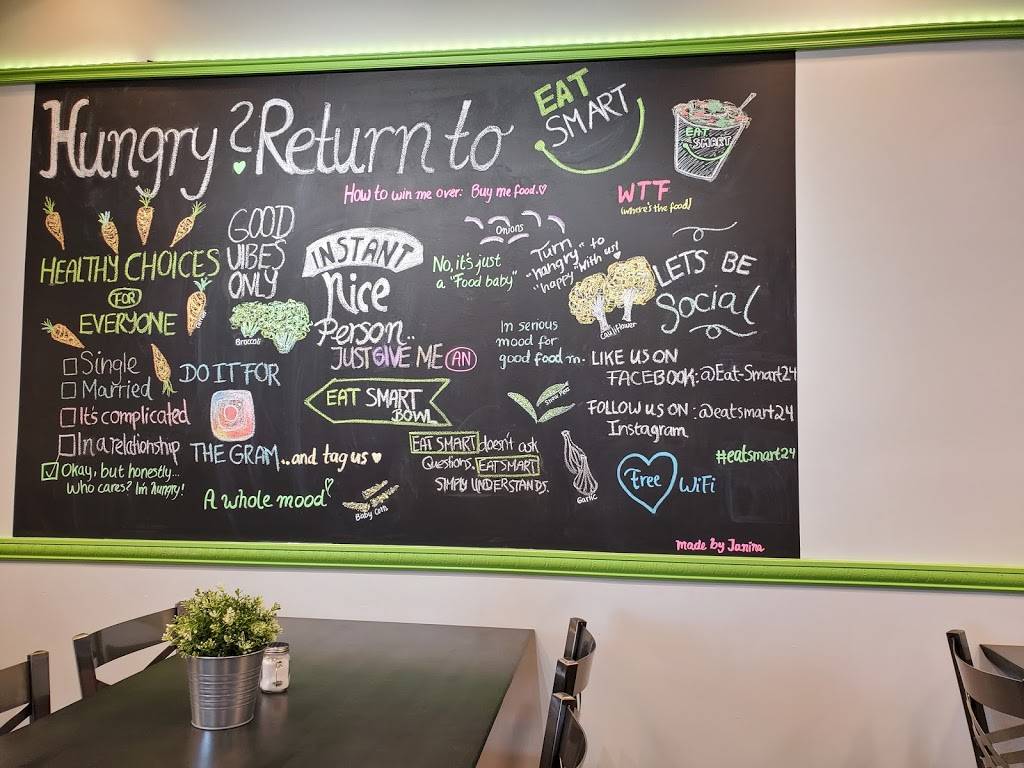 Hungry? Return to
EAT
SMART
EAT
SMART
How to win me over: Buy me food.
WTF
(where's the food)
HEALTHY CHOICES
FOR
EVERYONE
GOOD
VIBES
ONLY
Broccoli
INSTANT
Nice
Person..
JUST GIVE ME AN
EAT SMART
BOWL
Onions
No, it's just
a "Food baby"
Turn
"hangry" to
"happy" with us!
Cauliflower
LETS BE
Social
In serious
mood for
good food m.
LIKE US ON
FACEBOOK: @Eat-Smart24
FOLLOW US ON: @eatsmart24
Instagram
#eatsmart24
Single
Married
It's complicated
In a relationship
Okay, but honestly...
Who cares? I'm hungry!
DO IT FOR
THE GRAM...and tag us
A whole mood
Baby Corn
EAT SMART doesn't ask
Questions. EAT SMART
SIMPLY UNDERSTANDS.
Snow Peas
Garlic
Free WiFi
made by Janina